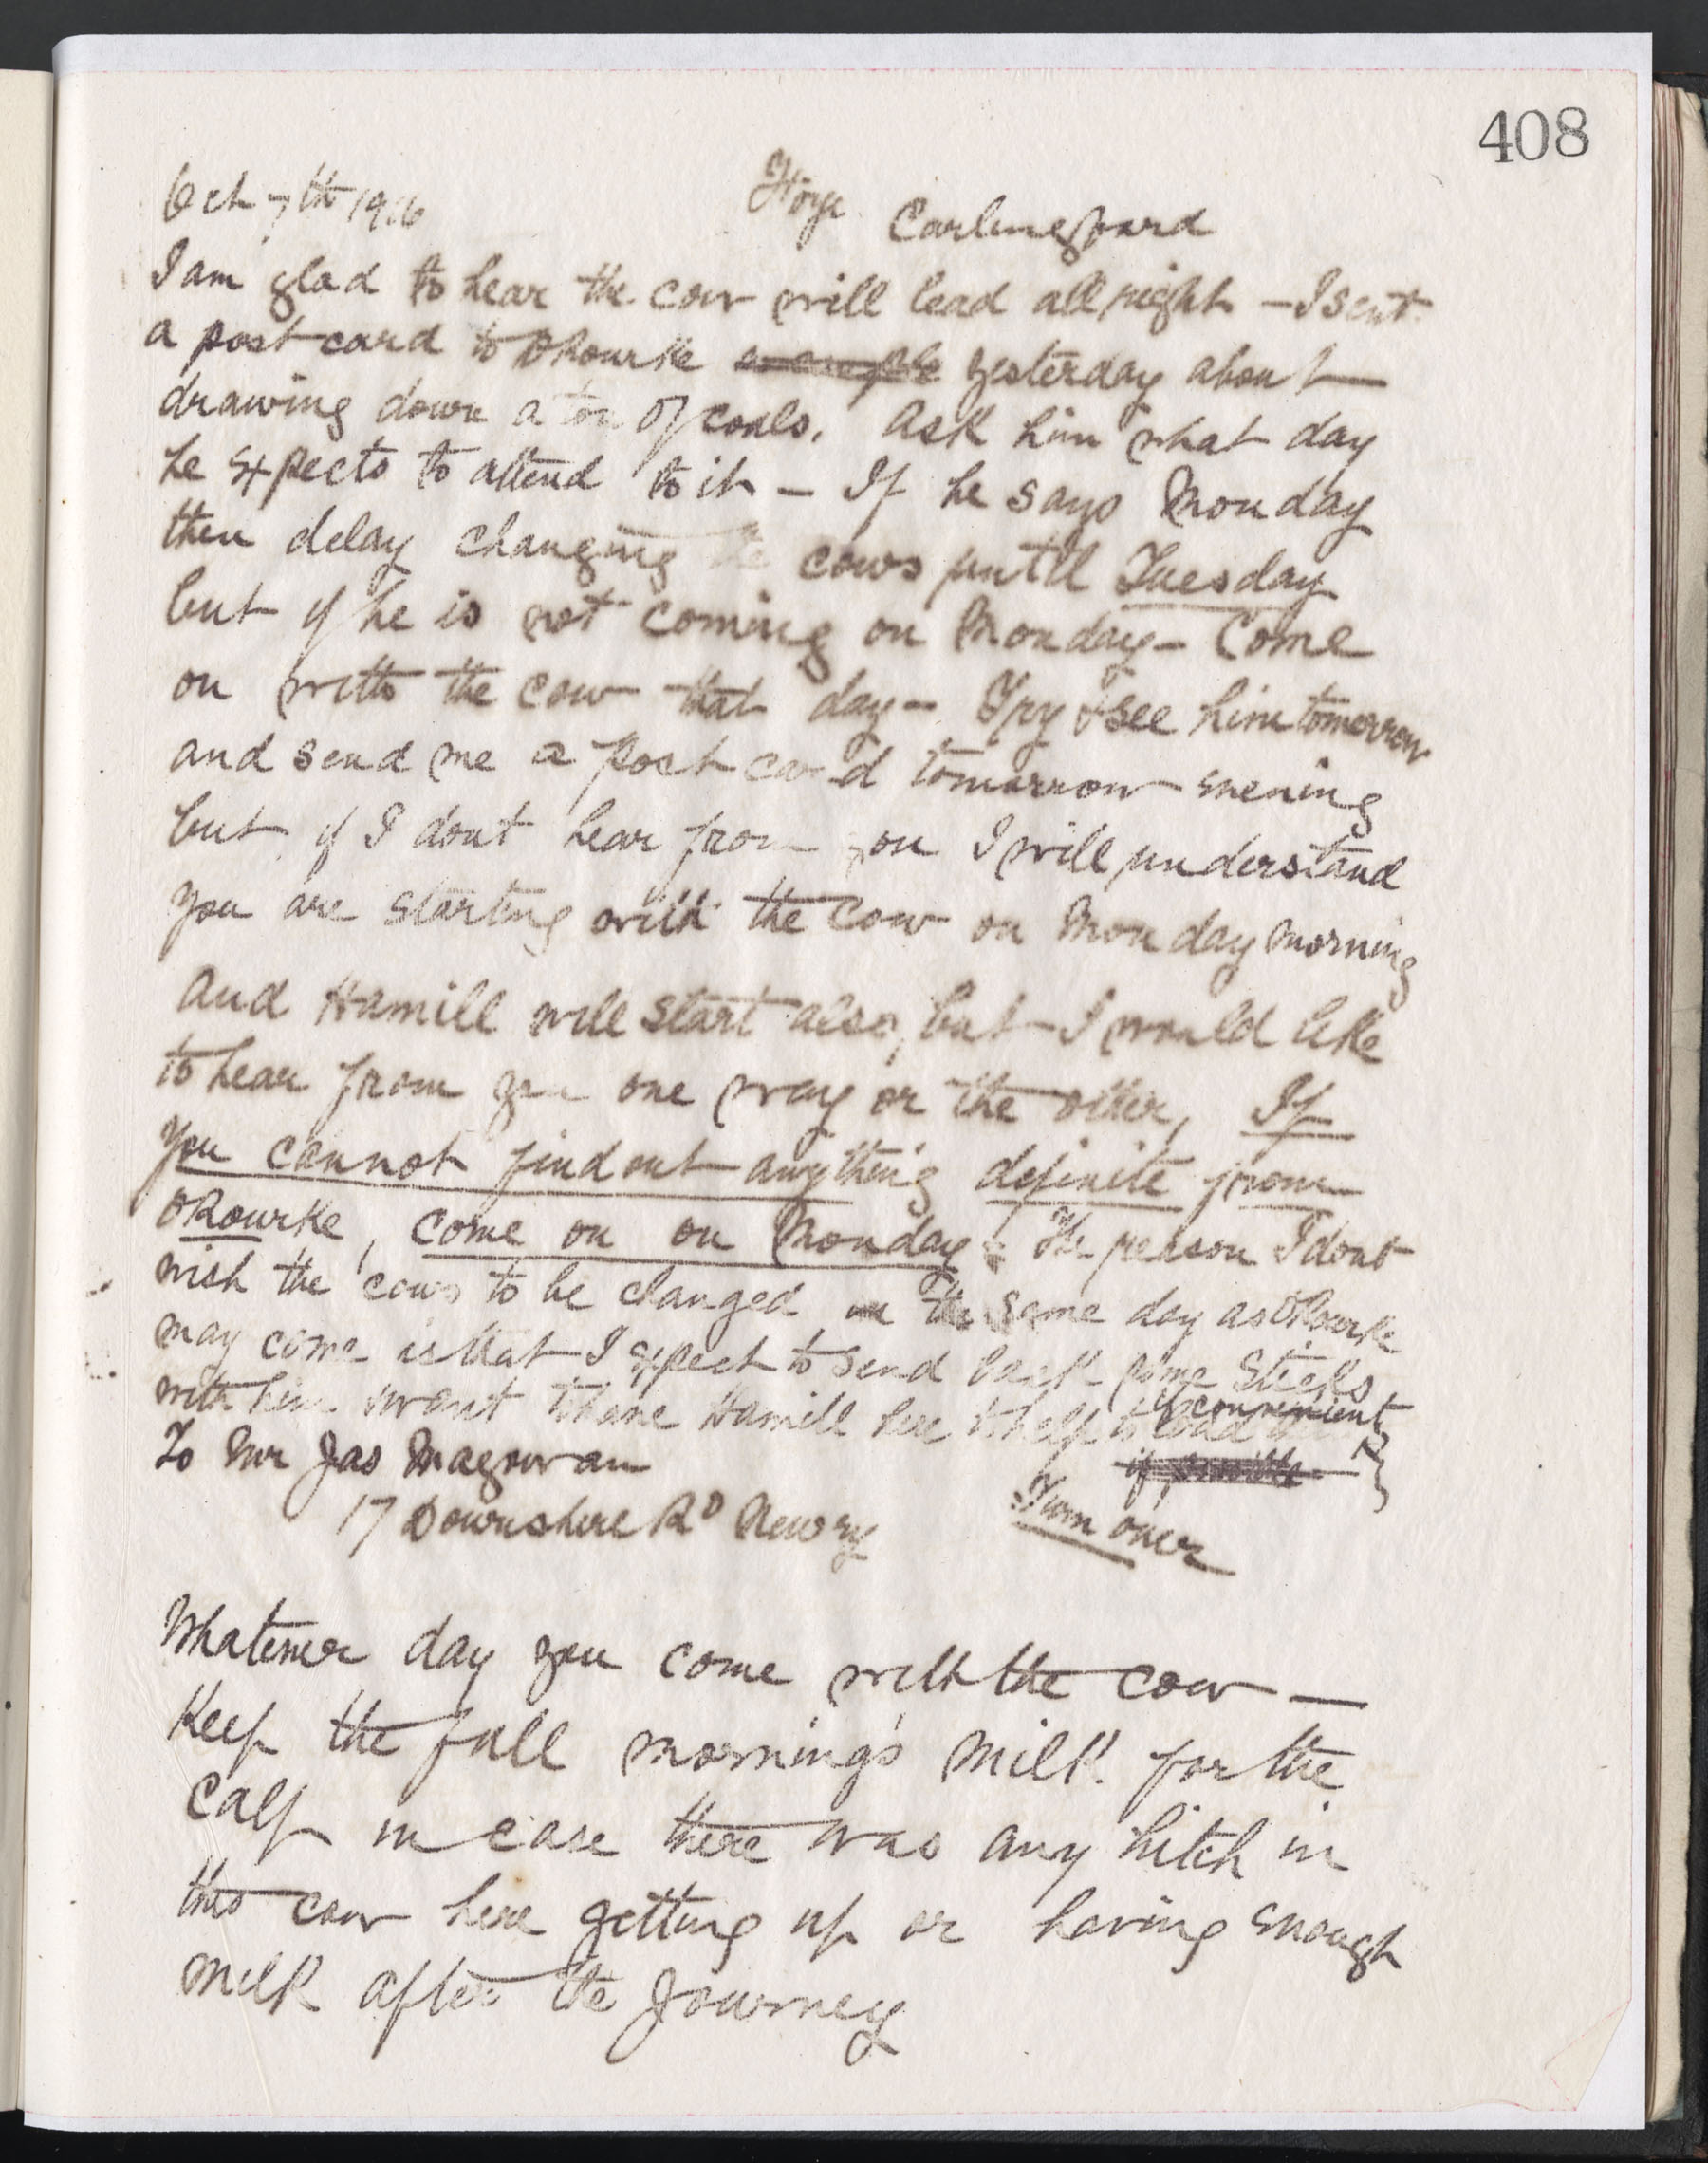 408
Oct 7th 1916 Carlingford
I am glad to hear the cow will lead all right – I sent
a post card to ORourke yesterday about
drawing down a ton of coals. Ask him what day
he expects to attend to it – If he says Monday
then delay changing the cows until Tuesday
but if he is not coming on Monday – Come
on with the cow that day – Try & see him tomorrow
and send me a post card tomorrow evening
but if I dont hear from you I will understand
you are starting with the cow on Monday morning
And Hamill will start also, but I would like
to hear from you one way or the other, If
you cannot find out anything definite from
ORourke, come on on Monday. The reason I dont
wish the cows to be changed on the same day as ORourke
may come is that I expect to send back some sticks
if convenient
with him & want to have Hamill here to help to load them
To Mr Jas Magowan
if possible
17 Downshire Rd Newry Turn over
Whatever day you come with the cow –
Keep the full morning's milk for the
Calf in case there was any hitch in
this cow here getting up or having enough
milk after the Journey